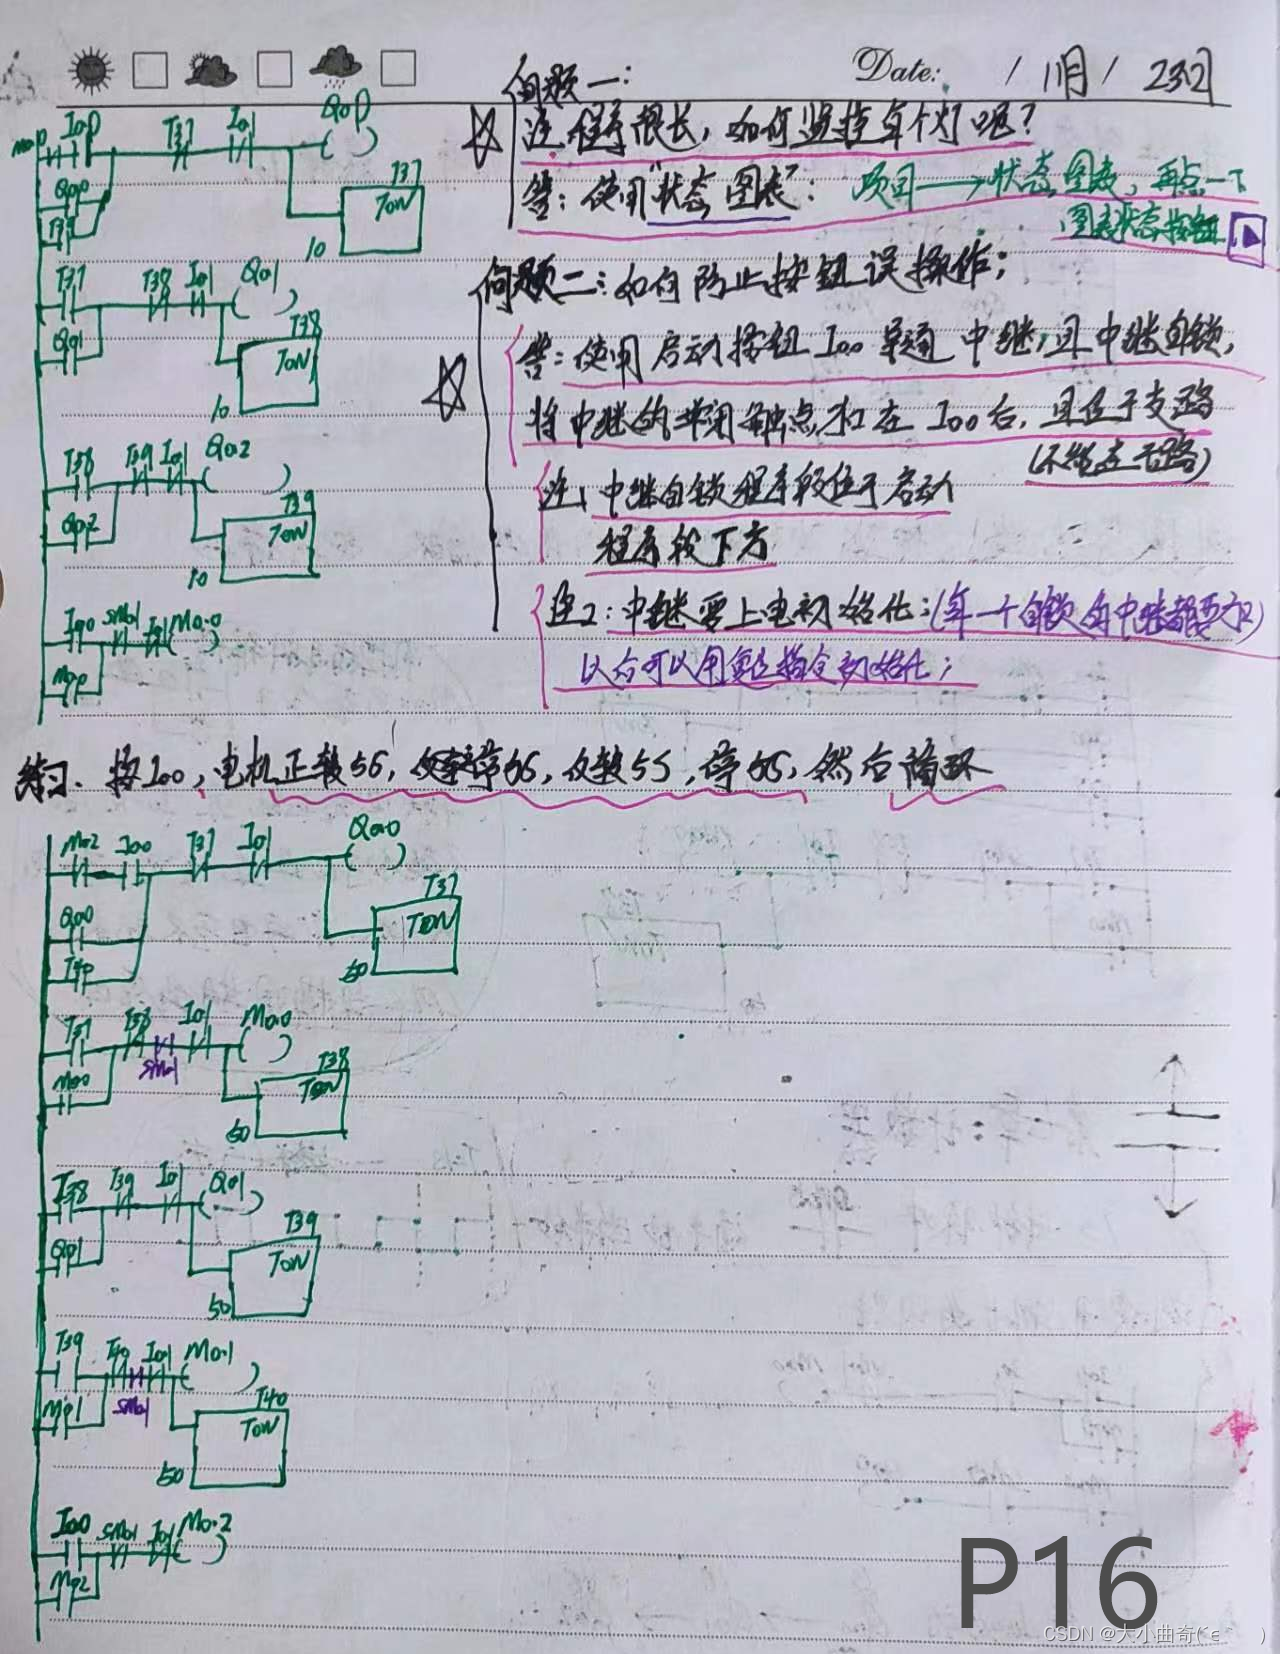 Date: / 11月 / 23日
问题一:
注: 程序很长, 如何监控每个灯呢?
答: 使用"状态图表": 项目→状态图表, 再点一下
图表状态按钮
问题二: 如何防止按钮误操作;
答: 使用启动按钮 I0.0 单通中继, 且中继自锁,
将中继的常闭触点加在 I0.0 后, 且位于支路
(不能在干路)
注1 中继自锁程序段位于启动
程序段下方
注2: 中继要上电初始化: (每一个自锁的中继都要加)
以后可以用复位指令初始化;
M0.0 I0.0 T37 I0.1 Q0.0
Q0.0
T39
T37
TON
10
T37 T38 I0.1 Q0.1
Q0.1
T38
TON
10
T38 T39 I0.1 Q0.2
Q0.2
T39
TON
10
I0.0 SM0.1 I0.1 M0.0
M0.0
练习、按 I0.0, 电机正转5S, 停5S, 反转5S, 停5S, 然后循环
M0.2 I0.0 T37 I0.1 Q0.0
Q0.0
T40
T37
TON
50
T37 T38 SM0.1 I0.1 M0.0
M0.0
T38
TON
50
T38 T39 I0.1 Q0.1
Q0.1
T39
TON
50
T39 T40 SM0.1 I0.1 M0.1
M0.1
T40
TON
50
I0.0 SM0.1 I0.1 M0.2
M0.2
P16
CSDN @大小曲奇(´ε｀ )